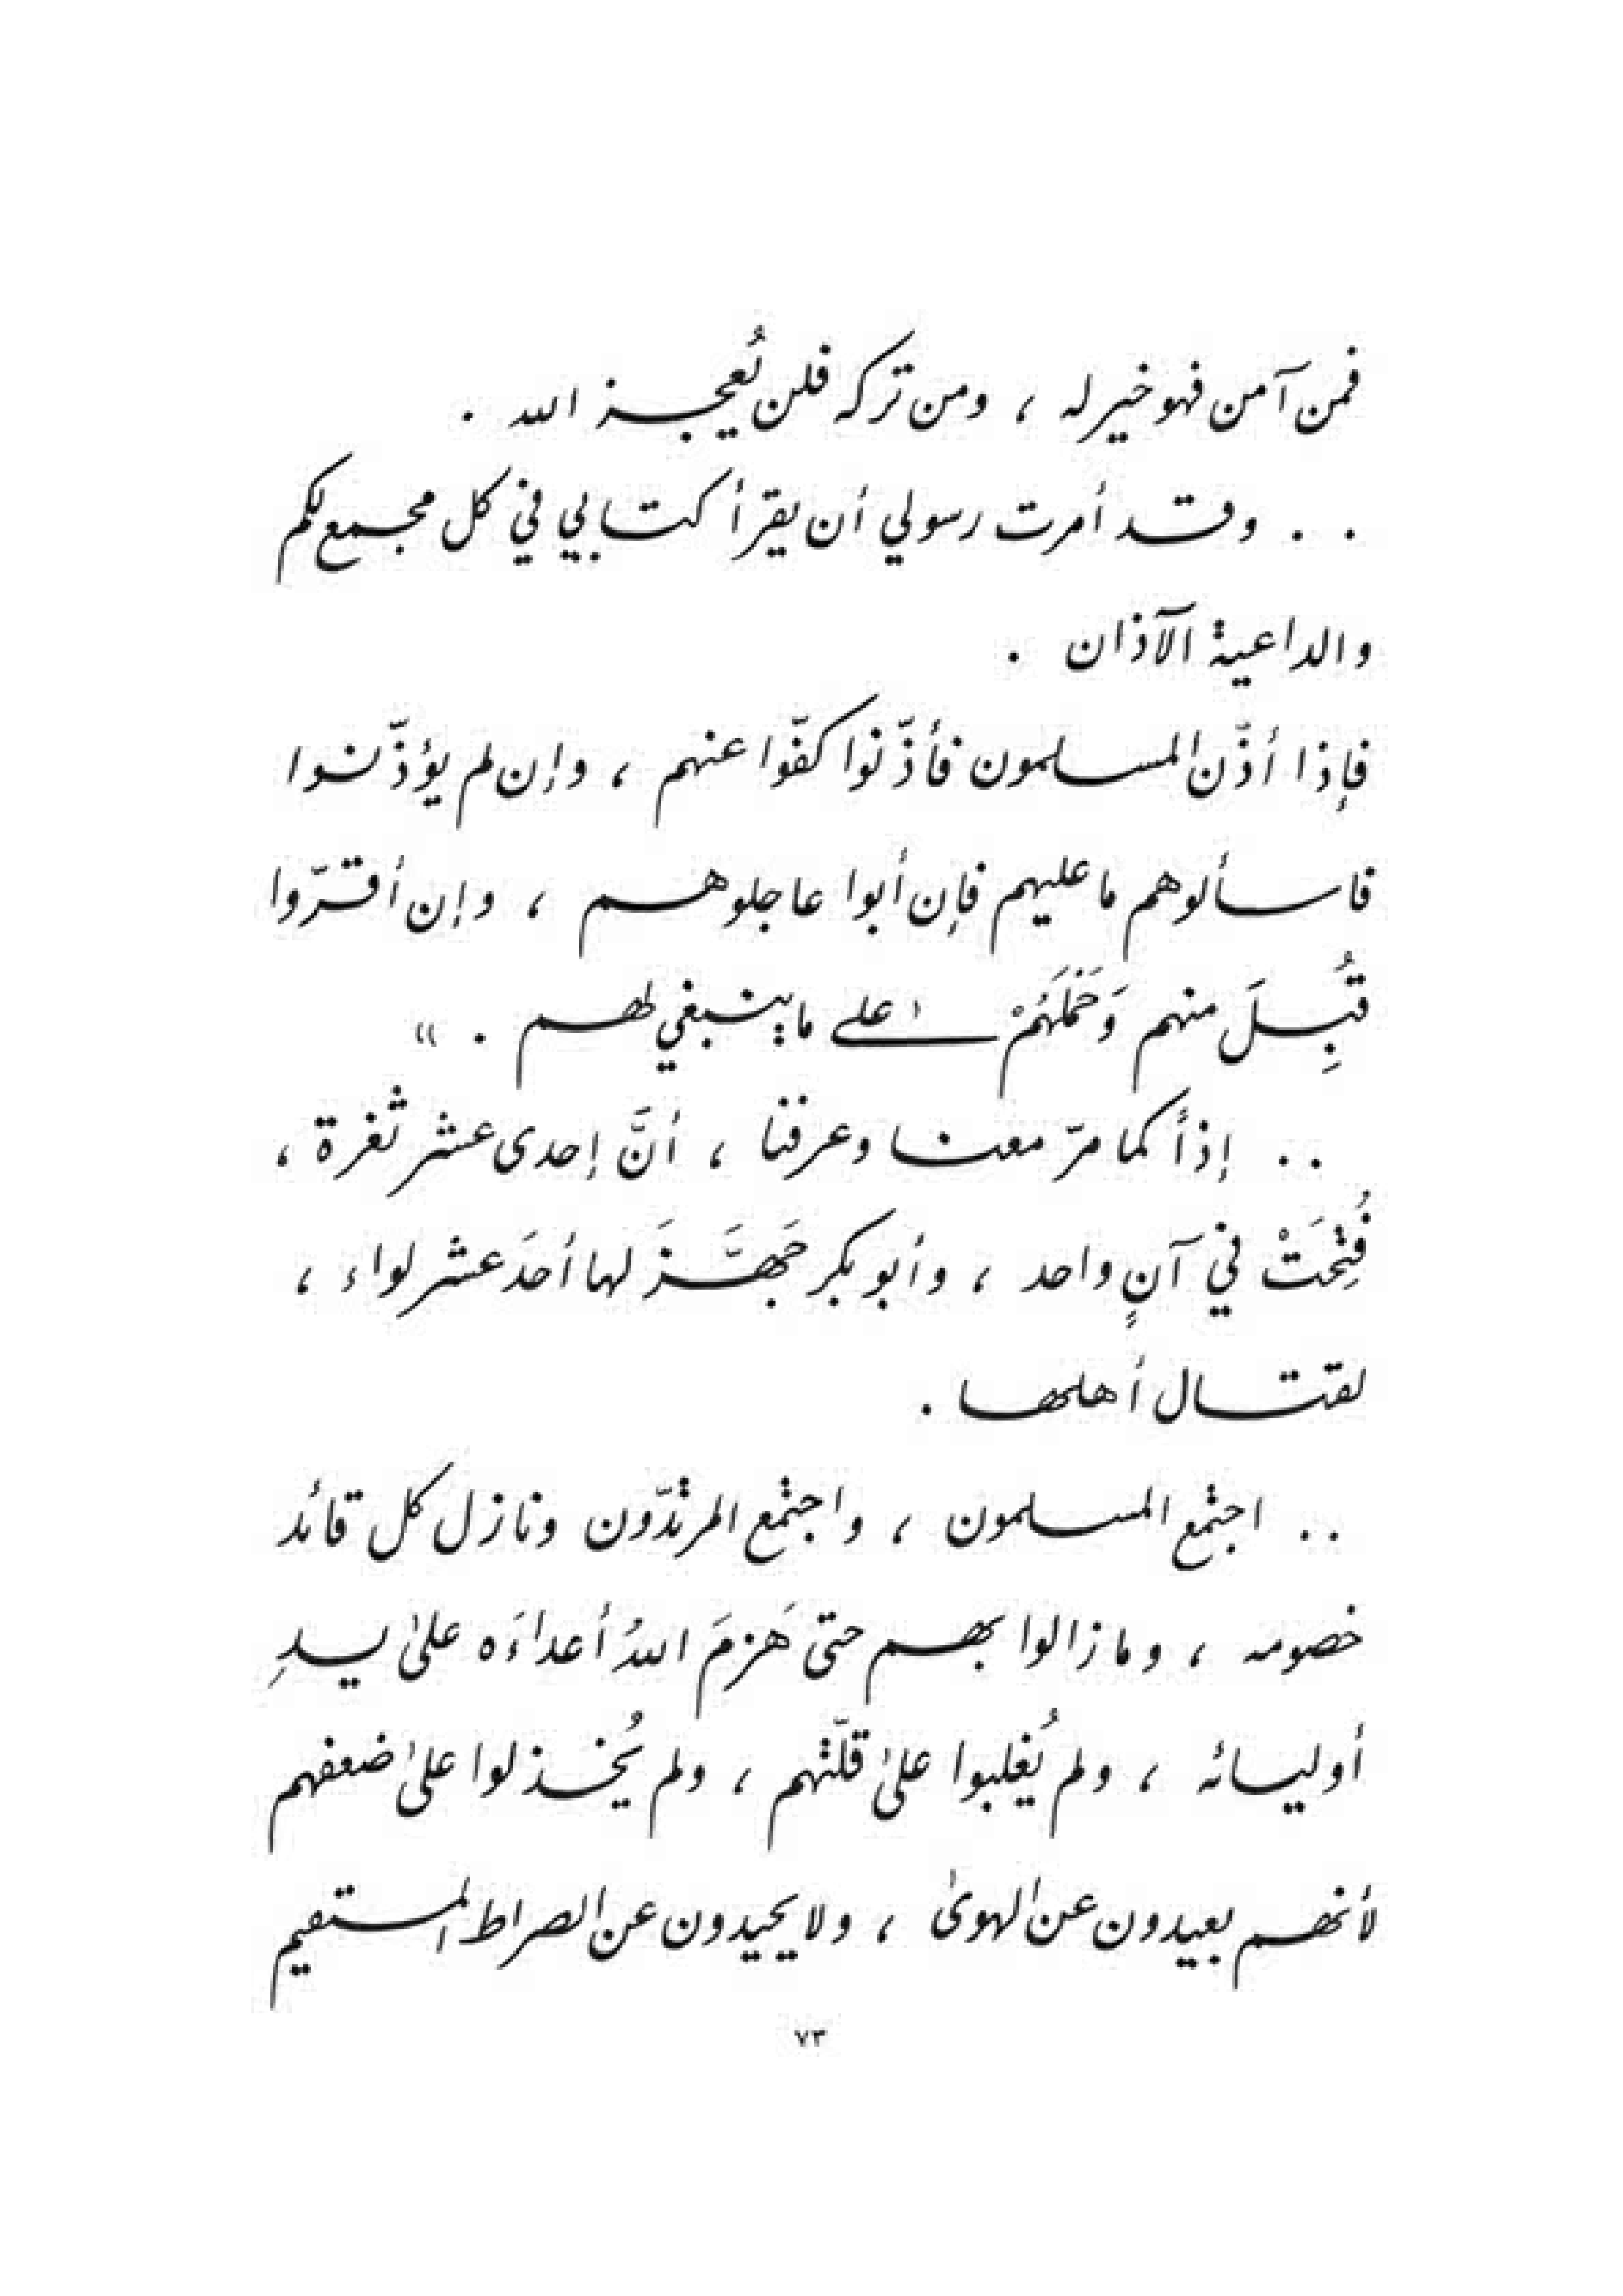 فمن آمن فهو خير له ، ومن تركه فلن يُعجـز الله .
. . وقـد أمرت رسولي أن يقرأ كتـابي في كل مجمع لكم
والداعية الآذان .
فإذا أذّن المسلمون فأذّنوا كفّوا عنهم ، وإن لم يؤذّنـوا
فاسألوهم ما عليهم فإن أبوا عاجلوهم ، وإن أقـرّوا
قُبِـلَ منهم وَحَمَلَهُمْ على ما ينبغي لهم . »
. . إذاً كما مرّ معنـا وعرفنا ، أنَّ إحدى عشر ثغرة ،
فُتِحَتْ في آنٍ واحد ، وأبو بكر جَهَّـزَ لها أحَد عشر لواء ،
لقتـال أهلهـا .
. . اجتمع المسلمون ، واجتمع المرتدّون ونازل كل قائد
خصومه ، وما زالوا بهم حتى هَزمَ اللهُ أعداءَه علىٰ يـدِ
أوليـائه ، ولم يُغلبوا علىٰ قلّتهم ، ولم يُخـذلوا علىٰ ضعفهم
لأنهم بعيدون عن الهوىٰ ، ولا يحيدون عن الصراط المستقيم
٧٣